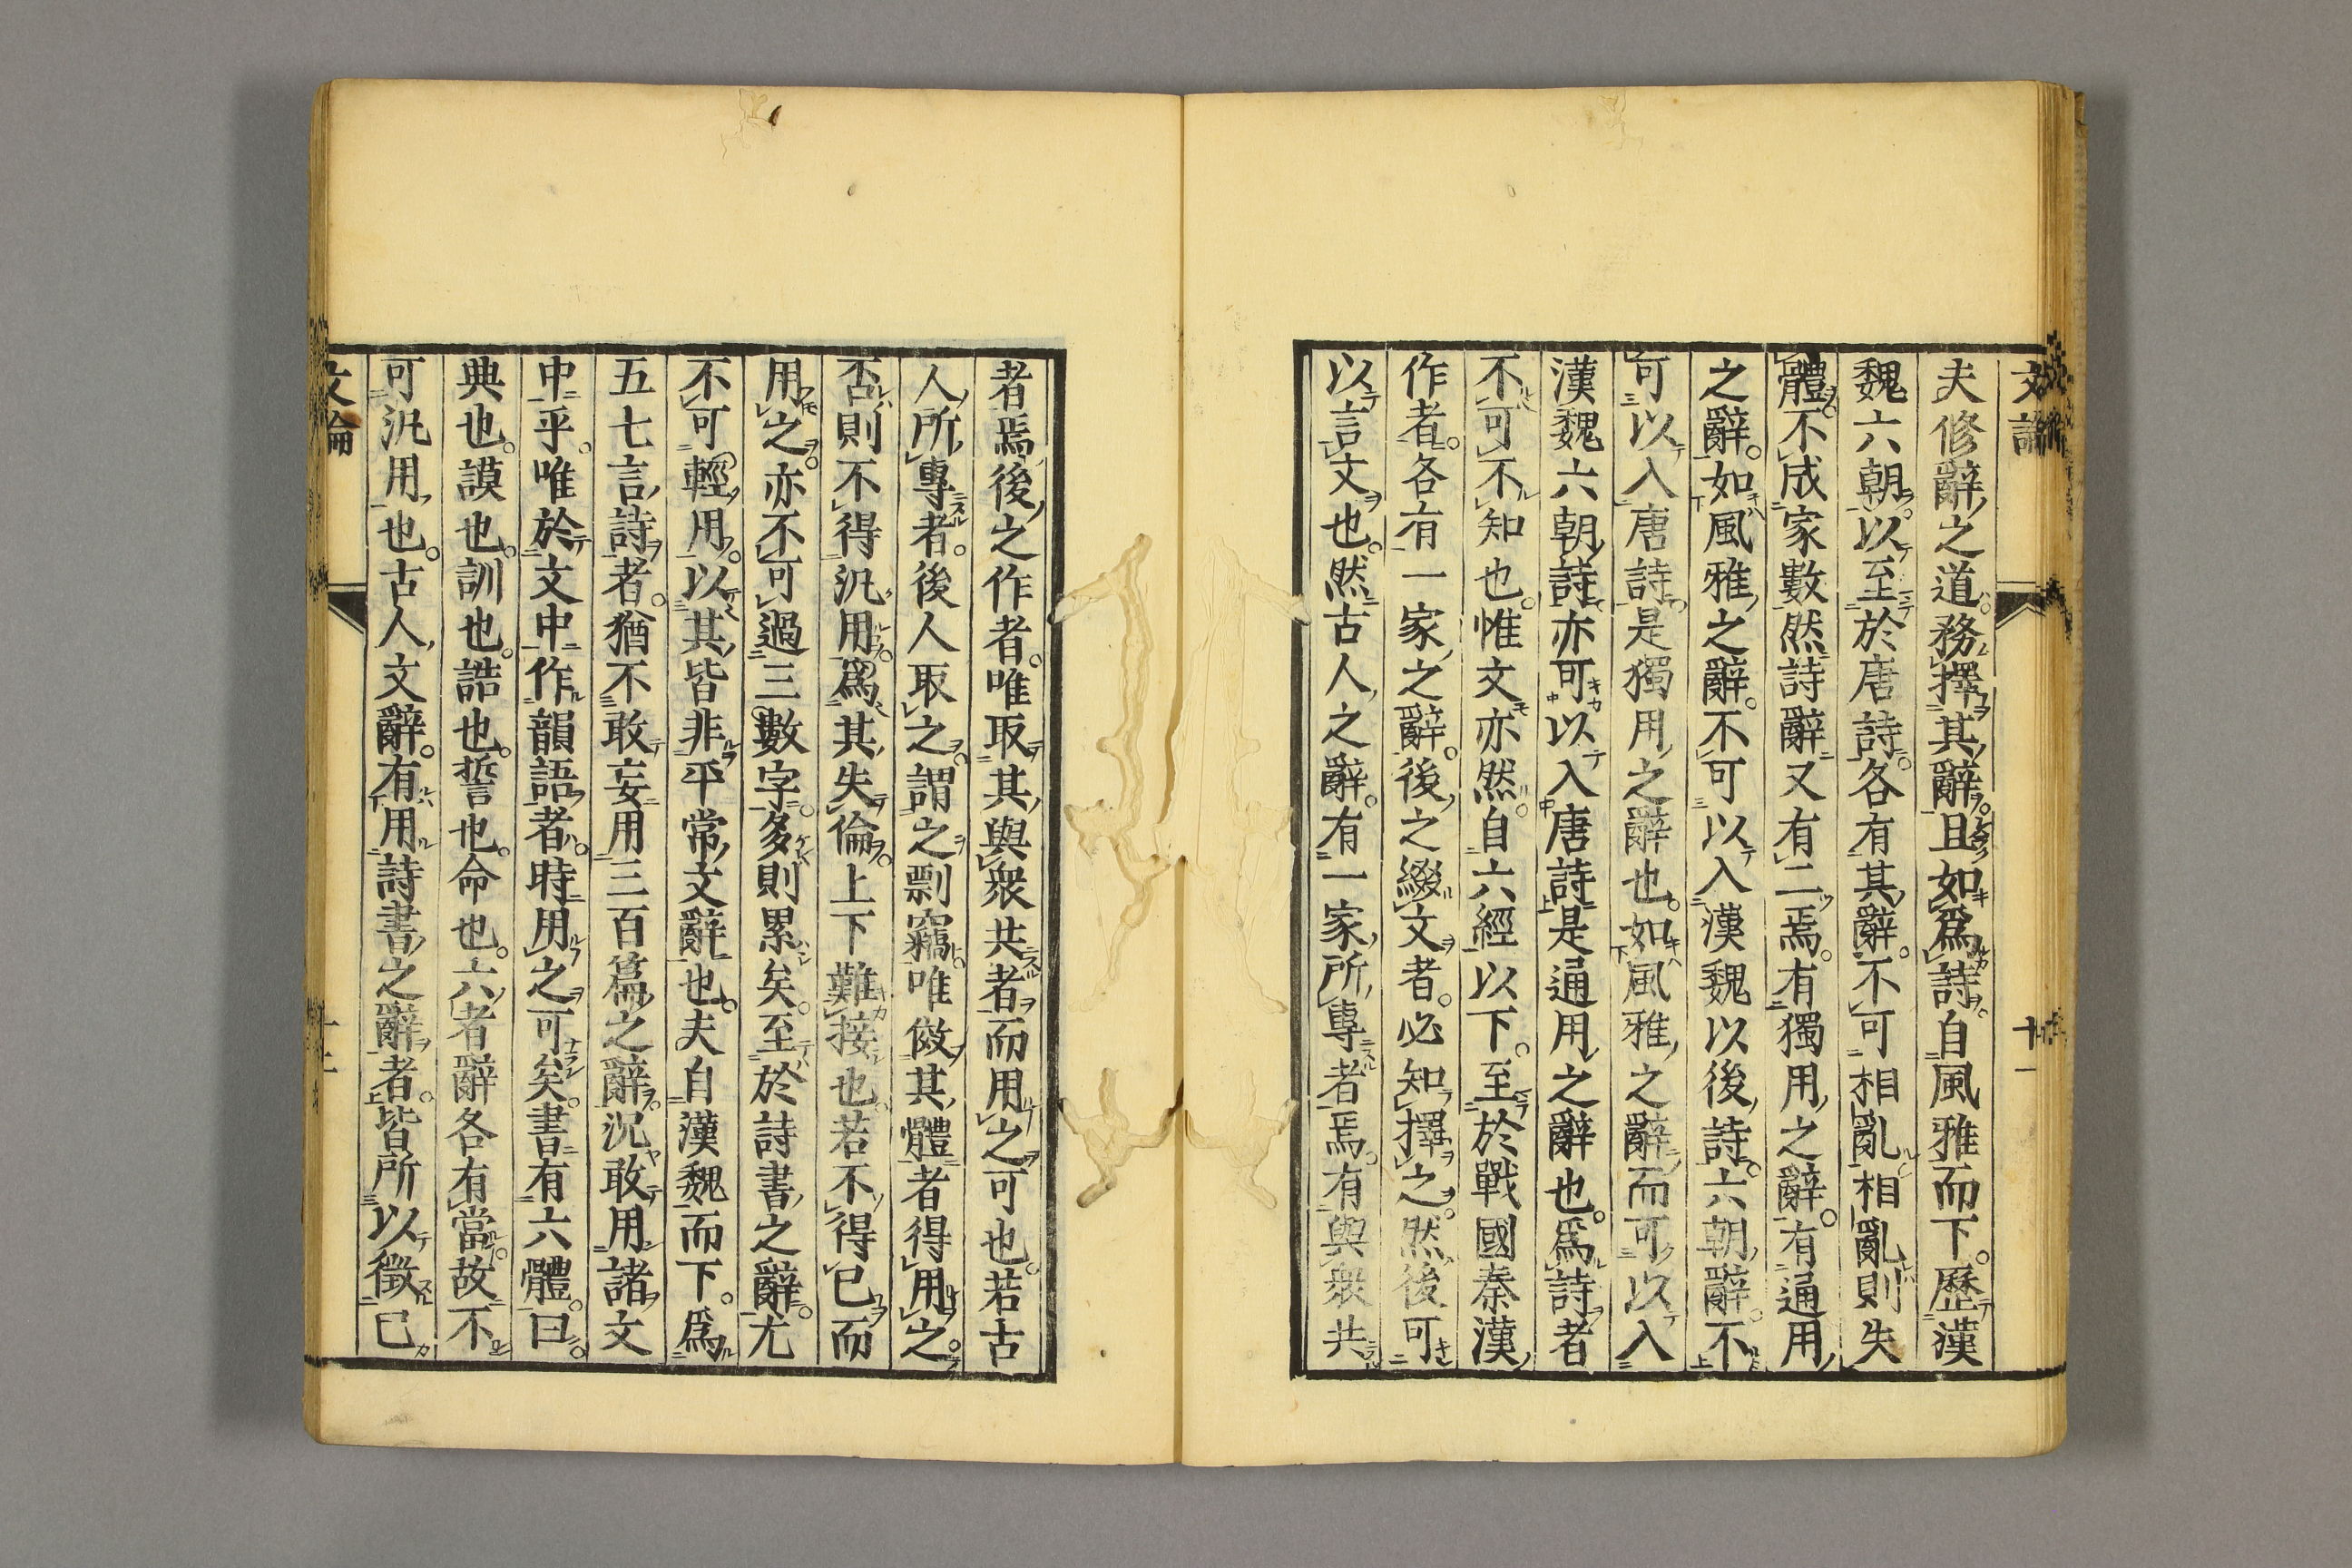 文論
十一
夫修辭之道。務擇其辭。且如爲詩。自風雅而下。歷漢
魏六朝。以至於唐詩。各有其辭。不可相亂。相亂則失
體。不成家數。然詩辭又有二焉。有獨用之辭。有通用
之辭。如風雅之辭。不可以入漢魏以後詩。六朝辭。不
可以入唐詩。是獨用之辭也。如風雅之辭而可以入
漢魏六朝詩。亦可以入唐詩。是通用之辭也。爲詩者
不可不知也。惟文亦然。自六經以下。至於戰國秦漢
作者。各有一家之辭。後之綴文者。必知擇之。然後可
以言文也。然古人之辭。有一家所專者焉。有與衆共
者焉。後之作者。唯取其與衆共者而用之可也。若古
人所專者。後人取之。謂之剽竊。唯倣其體者得用之。
否則不得汎用。爲其失倫。上下難接也。若不得已而
用之。亦不可過三數字。多則累矣。至於詩書之辭。尤
不可輕用。以其皆非平常文辭也。夫自漢魏而下。爲
五七言詩者。猶不敢妄用三百篇之辭。況敢用諸文
中乎。唯於文中作韻語者。時用之可矣。書有六體。曰
典也。謨也。訓也。誥也。誓也。命也。六者辭各有當。故不
可汎用也。古人文辭。有用詩書之辭者。皆所以徵己
文論